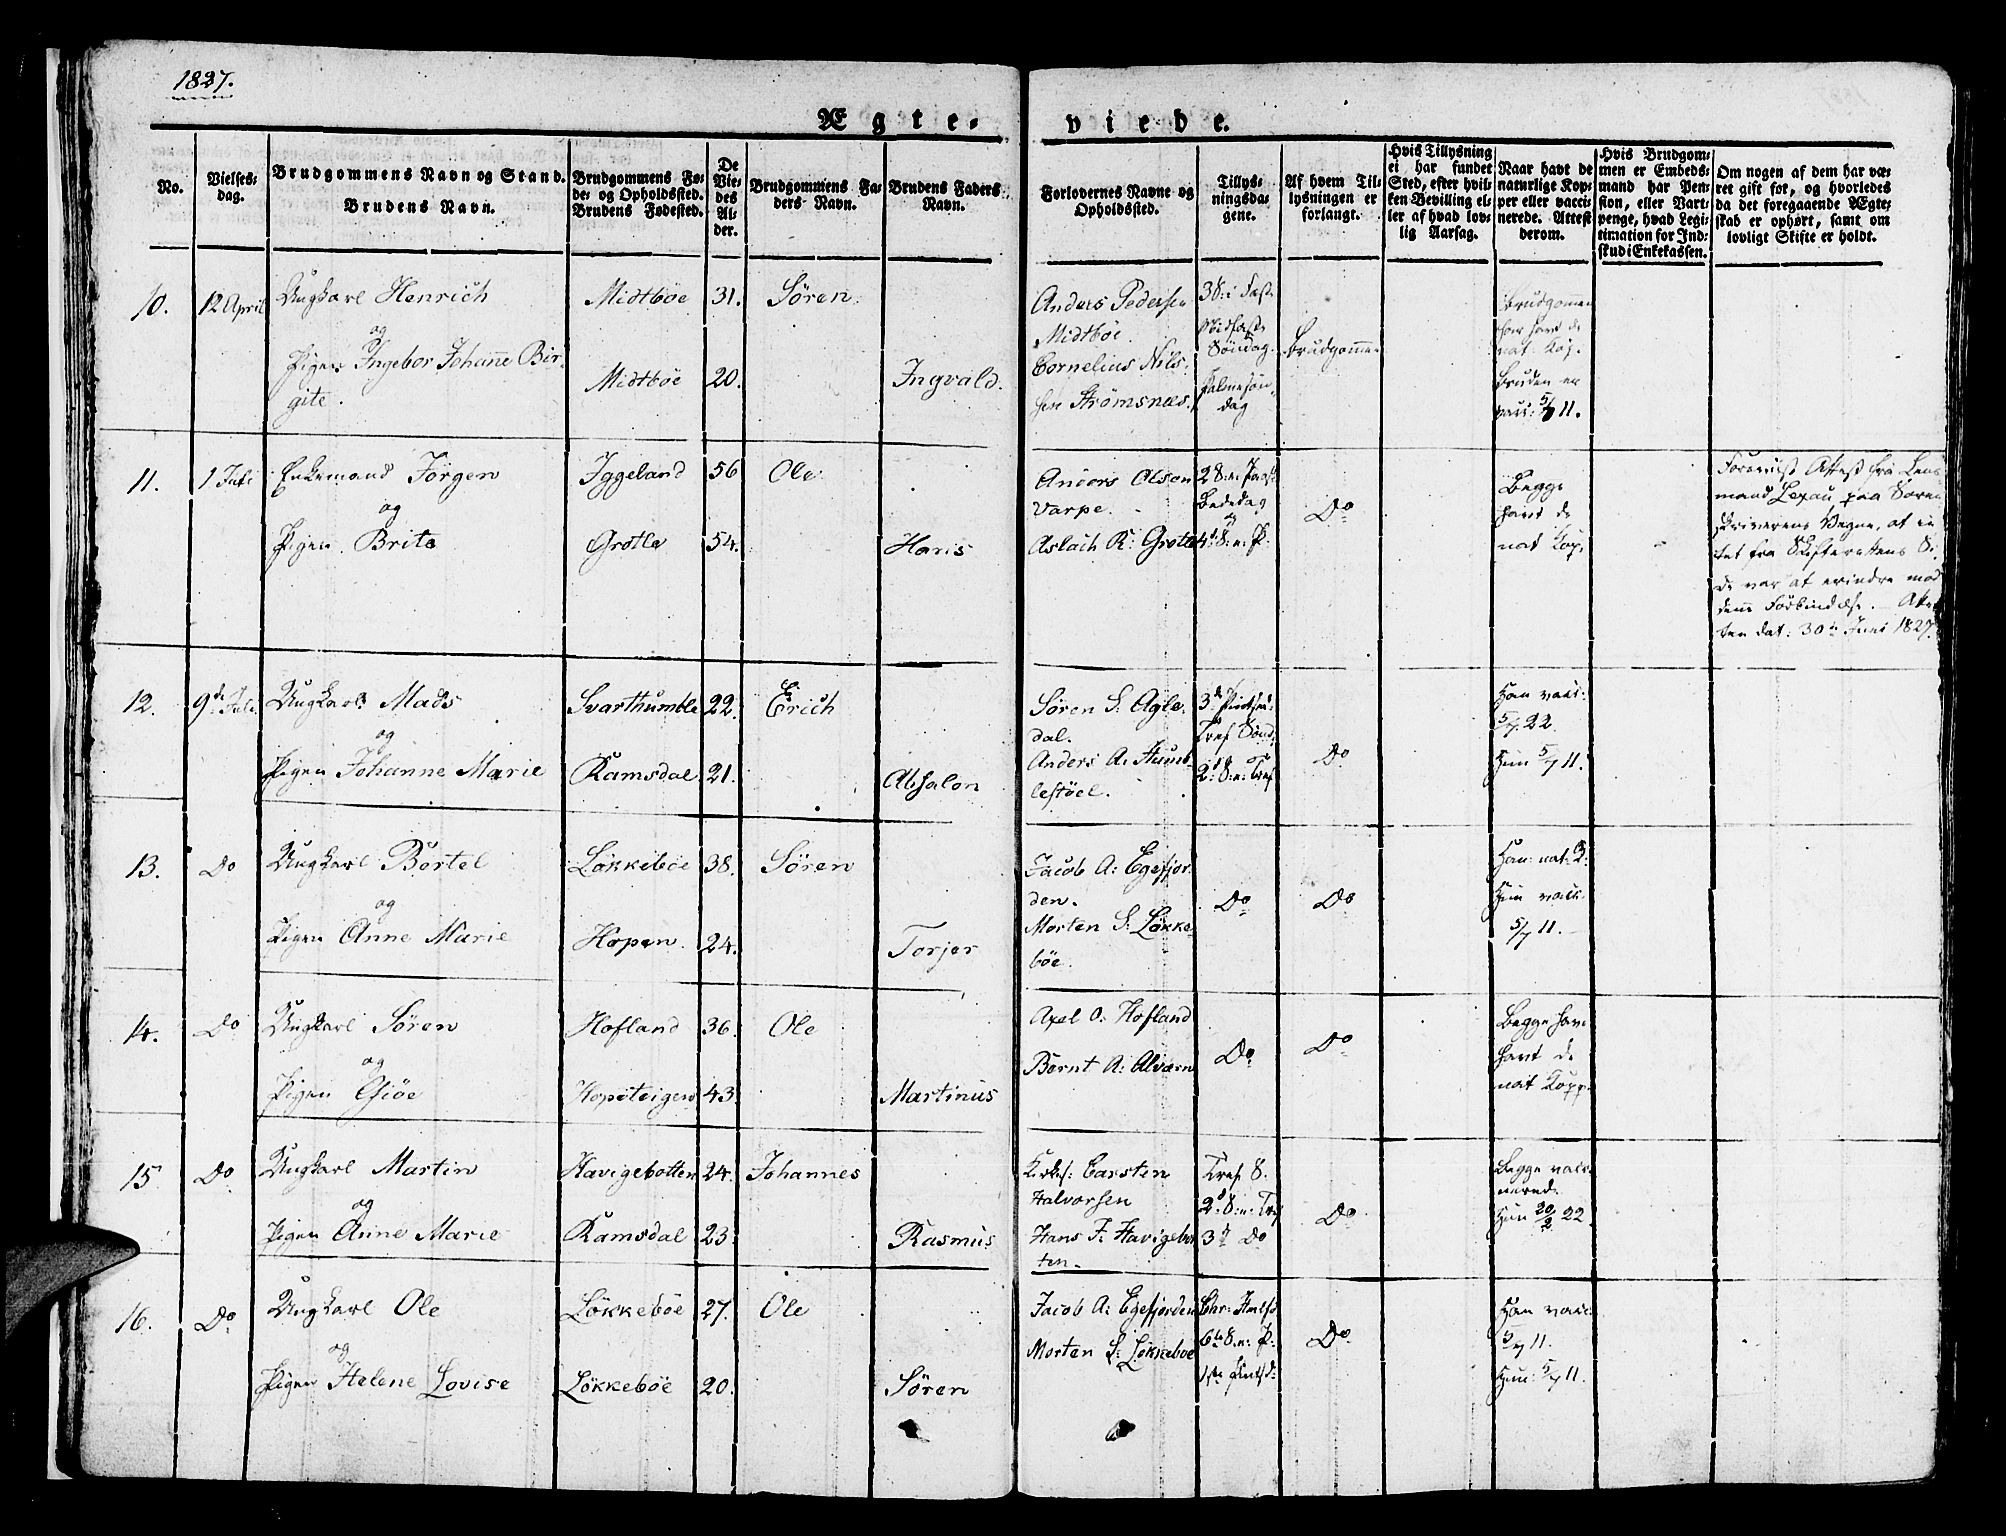 1827.
Ægte-
viede.
No.
Vielses-
dag.
Brudgommens Navn og Stand.
Brudens Navn.
Brudgommens Fø-
de- og Opholdssted.
Brudens Fødested.
De
Vie-
des
Al-
der.
Brudgommens Fa-
ders Navn.
Brudens Faders
Navn.
Forlovernes Navne og
Opholdssted.
Tillys-
ningsda-
gene.
Af hvem Til-
lysningen er
forlangt.
Hvis Tillysning
ei har fundet
Sted, efter hvil-
ken Bevilling el-
ler af hvad lov-
lig Aarsag.
Naar havt de
naturlige Kop-
per eller vacci-
nerede. Attest
derom.
Hvis Brudgom-
men er Embeds-
mand har Pen-
sion, eller Vart-
penge, hvad Legi-
timation for Ind-
skud i Enkekassen.
Om nogen af dem har væ-
ret gift før, og hvorledes
da det foregaaende Ægte-
skab er ophørt, samt om
lovligt Skifte er holdt.
10.
12 April
Ungkarl Henrich
og
Pigen Ingebor Johanne Bir-
gite.
Midtbøe
Midtbøe
31.
20.
Søren
Ingvald.
Anders Pedersen
Midtbøe.
Cornelius Nils-
sen Strømsnæs.
3 S: i Faste
Midfaste
Søndag.
Palmesøn-
dag
Brudgommen
Brudgommen
har havt de
nat: Kop.
Bruden er
vacc: 5/7 11.
11.
1 Juli
Enkemand Jørgen
og
Pigen Brite
Iggeland
Grotle
56
54.
Ole
Haris
Anders Olson
Varpe.
Aslach R: Grotle
2 S: n: Paask
Bededag
og
4d S: n: P:
Do
Begge
havt de
nat Kop.
Foreviist Attest fra Lens
mand Lexau paa Soren
skriverens Vegne, at in
tet fra Skifterettens Si-
de var at erindre mod
denne Forbindelse. - Attes
ten dat: 30te Juni 1827.
12.
9de Juli
Ungkarl Mads
og
Pigen Johanne Marie
Svarthumble
Ramsdal
22.
21.
Erich
Absalon
Søren S: Agle-
dal.
Anders A: Humb-
lestøel.
3d Pintsed:
Tref Sønd:
og
2d S: n: Tref
Do
Han vacc:
5/7 22.
Hun 5/7 11.
13.
Do
Ungkarl Bertel
og
Pigen Anne Marie
Løkkebøe
Hopen.
38.
24.
Søren
Torjer
Jacob A: Egefjor-
den.
Morten S: Løkke-
bøe.
Do
Do
Han nat: K:
Hun vacc.
5/7 11.
14.
Do
Ungkarl Søren
og
Pigen
Hofland
Hopsteigen
36.
43.
Ole
Martinus
Axel O: Hofland
Bernt A: Alværn
Do
Do
Begge har
havt de
nat Kopp.
15
Do
Ungkarl Martin
og
Pigen Anne Marie
Havigebotten
Ramsdal
24.
23
Johannes
Rasmus
Kirkes: Carsten
Halvorsen
Hans J: Havigebot
ten.
Tref S.
2d S: n: Tref
3d Do
Do
Begge vacc-
nered.
Hun 20/2 22
16.
Do
Ungkarl Ole
og
Pigen Helene Lovise
Løkkebøe
Løkkebøe
27.
20.
Ole
Søren
Jacob A: Egefjorden
Morten S: Løkkebøe
Chr: Himlf:
6te S: n: P:
1ste Pintsd:
Do
Han vacc:
5/7 11.
Hun: 5/7 11.